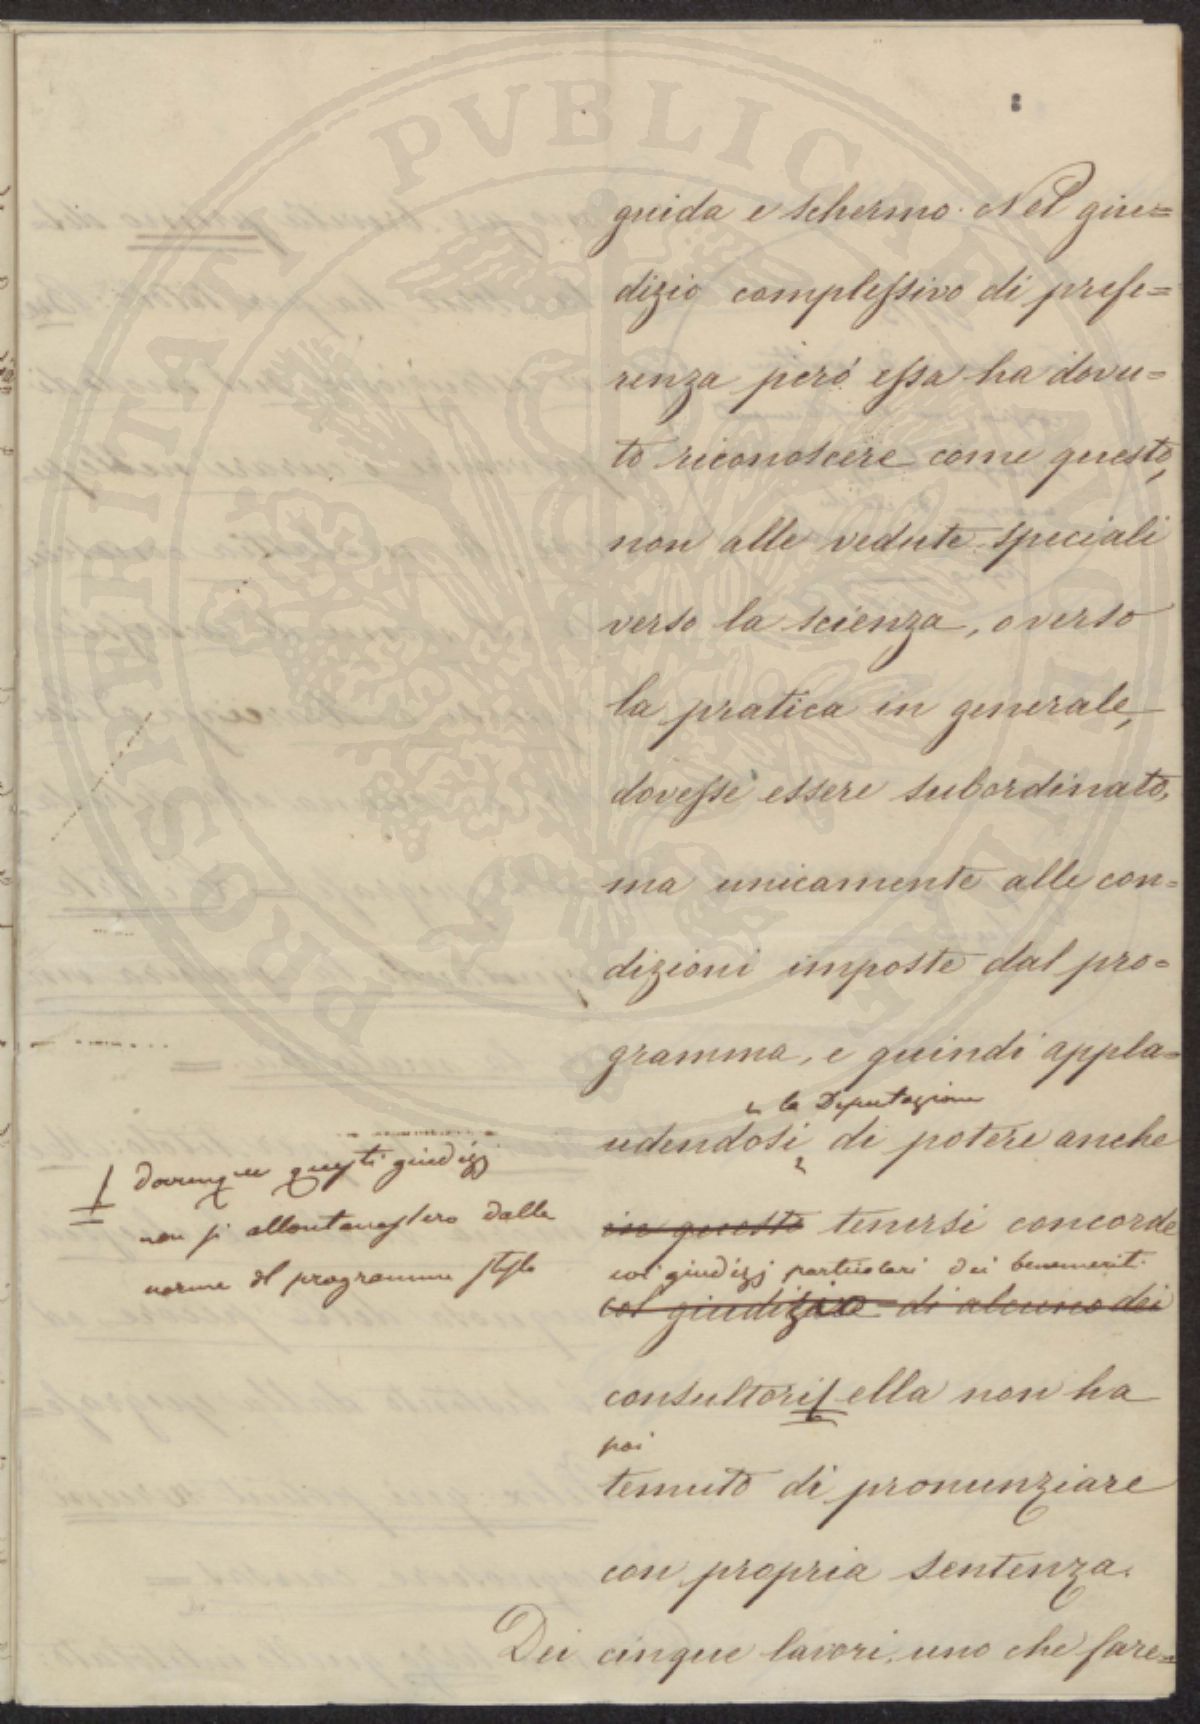 PROSPERITATI PVBLICAE
guida e schermo. Nel giu=
dizio complessivo di prefe=
renza però essa ha dovu=
to riconoscere come questo,
non alle vedute speciali
verso la scienza, o verso
la pratica in generale,
dovesse essere subordinato,
ma unicamente alle con=
dizioni imposte dal pro=
gramma, e quindi appla=
la Deputazione
udendosi, di potere anche
in questo tenersi concorde
coi giudizj particolari dei benemeriti
col giudizio di alcuno dei
consultori ella non ha
poi
temuto di pronunziare
con propria sentenza.
Dei cinque lavori, uno che fare=
dovunque questi giudizj
non si allontanassero dalle
norme del programma stesso